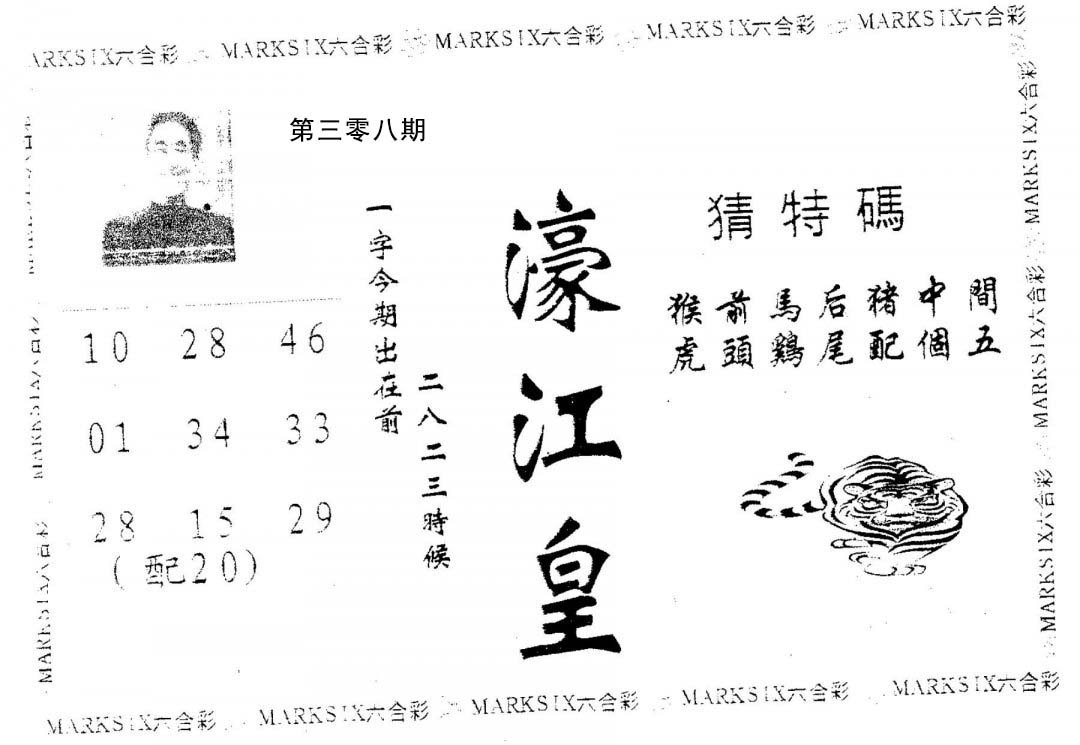 MARKSIX六合彩 MARKSIX六合彩 MARKSIX六合彩 MARKSIX六合彩
第三零八期
10 28 46
01 34 33
28 15 29
(配20)
一字今期出在前
二八二三時候
濠江皇
猜特碼
猴前馬后豬中間
虎頭鷄尾配個五
MARKSIX六合彩
MARKSIX六合彩
MARKSIX六合彩
MARKSIX六合彩 MARKSIX六合彩 MARKSIX六合彩 MARKSIX六合彩 MARKSIX六合彩